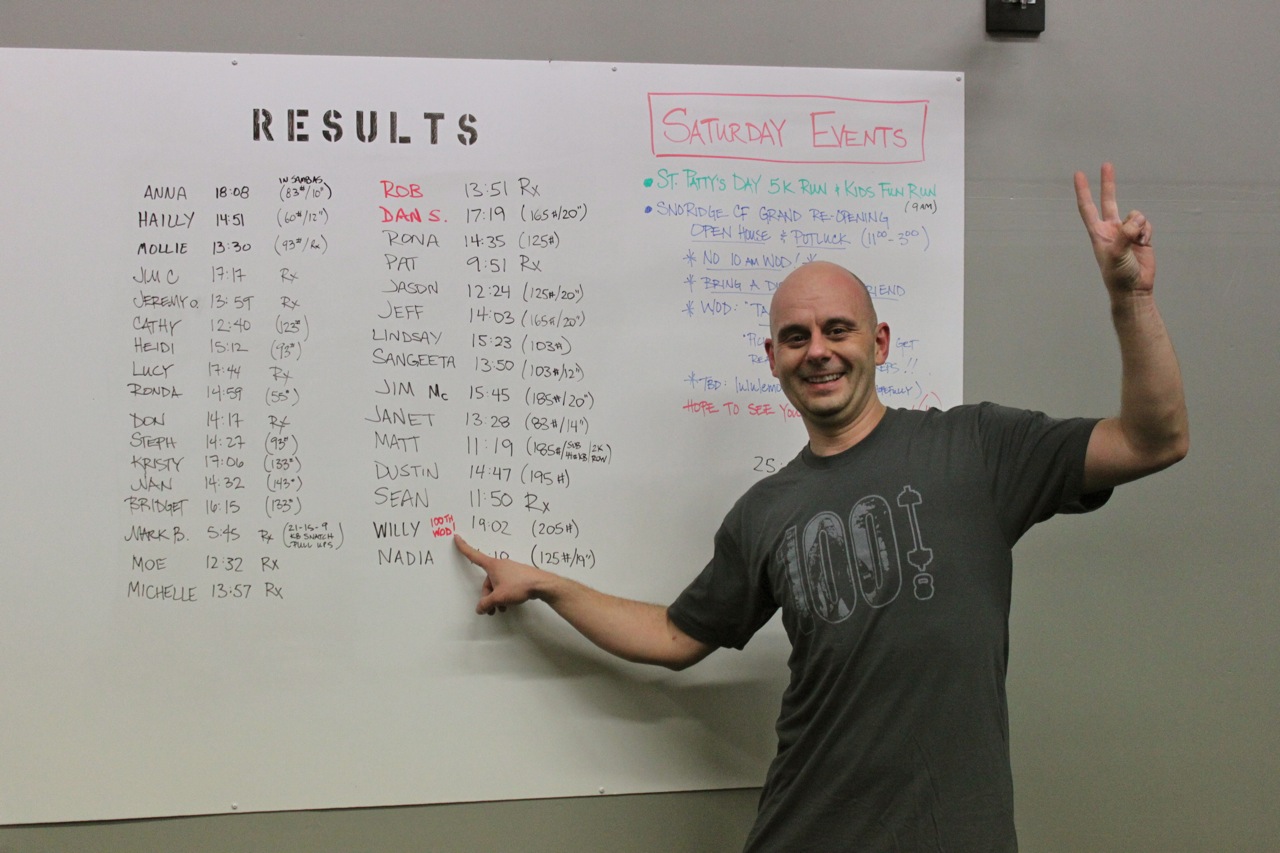 RESULTS
IN SAMBAS
ANNA 18:08 (83#/10")
HAILLY 14:51 (60#/12")
MOLLIE 13:30 (93#/Rx)
JIM C 17:17 Rx
JEREMY O. 13:59 Rx
CATHY 12:40 (123#)
HEIDI 15:12 (93#)
LUCY 17:44 Rx
RONDA 14:59 (55#)
DON 14:17 Rx
STEPH 14:27 (93#)
KRISTY 17:06 (133#)
NAN 14:32 (143#)
BRIDGET 16:15 (133#)
MARK B. 5:45 Rx (21-15-9 KB SNATCH PULL UPS)
MOE 12:32 Rx
MICHELLE 13:57 Rx
ROB 13:51 Rx
DAN S. 17:19 (165#/20")
RONA 14:35 (125#)
PAT 9:51 Rx
JASON 12:24 (125#/20")
JEFF 14:03 (165#/20")
LINDSAY 15:23 (103#)
SANGEETA 13:50 (103#/12")
JIM Mc 15:45 (185#/20")
JANET 13:28 (83#/14")
MATT 11:19 (185#/SUB 44#KB/2K ROW)
DUSTIN 14:47 (195#)
SEAN 11:50 Rx
WILLY 100TH WOD! 19:02 (205#)
NADIA (125#/19")
SATURDAY EVENTS
• ST. PATTY'S DAY 5K RUN & KIDS FUN RUN
(9AM)
• SNORIDGE CF GRAND RE-OPENING
OPEN HOUSE & POTLUCK (11:00-3:00)
* NO 10 AM WOD! *
* BRING A
* WOD:
GET
* TBD:
HOPE TO SEE YOU
25:
100!